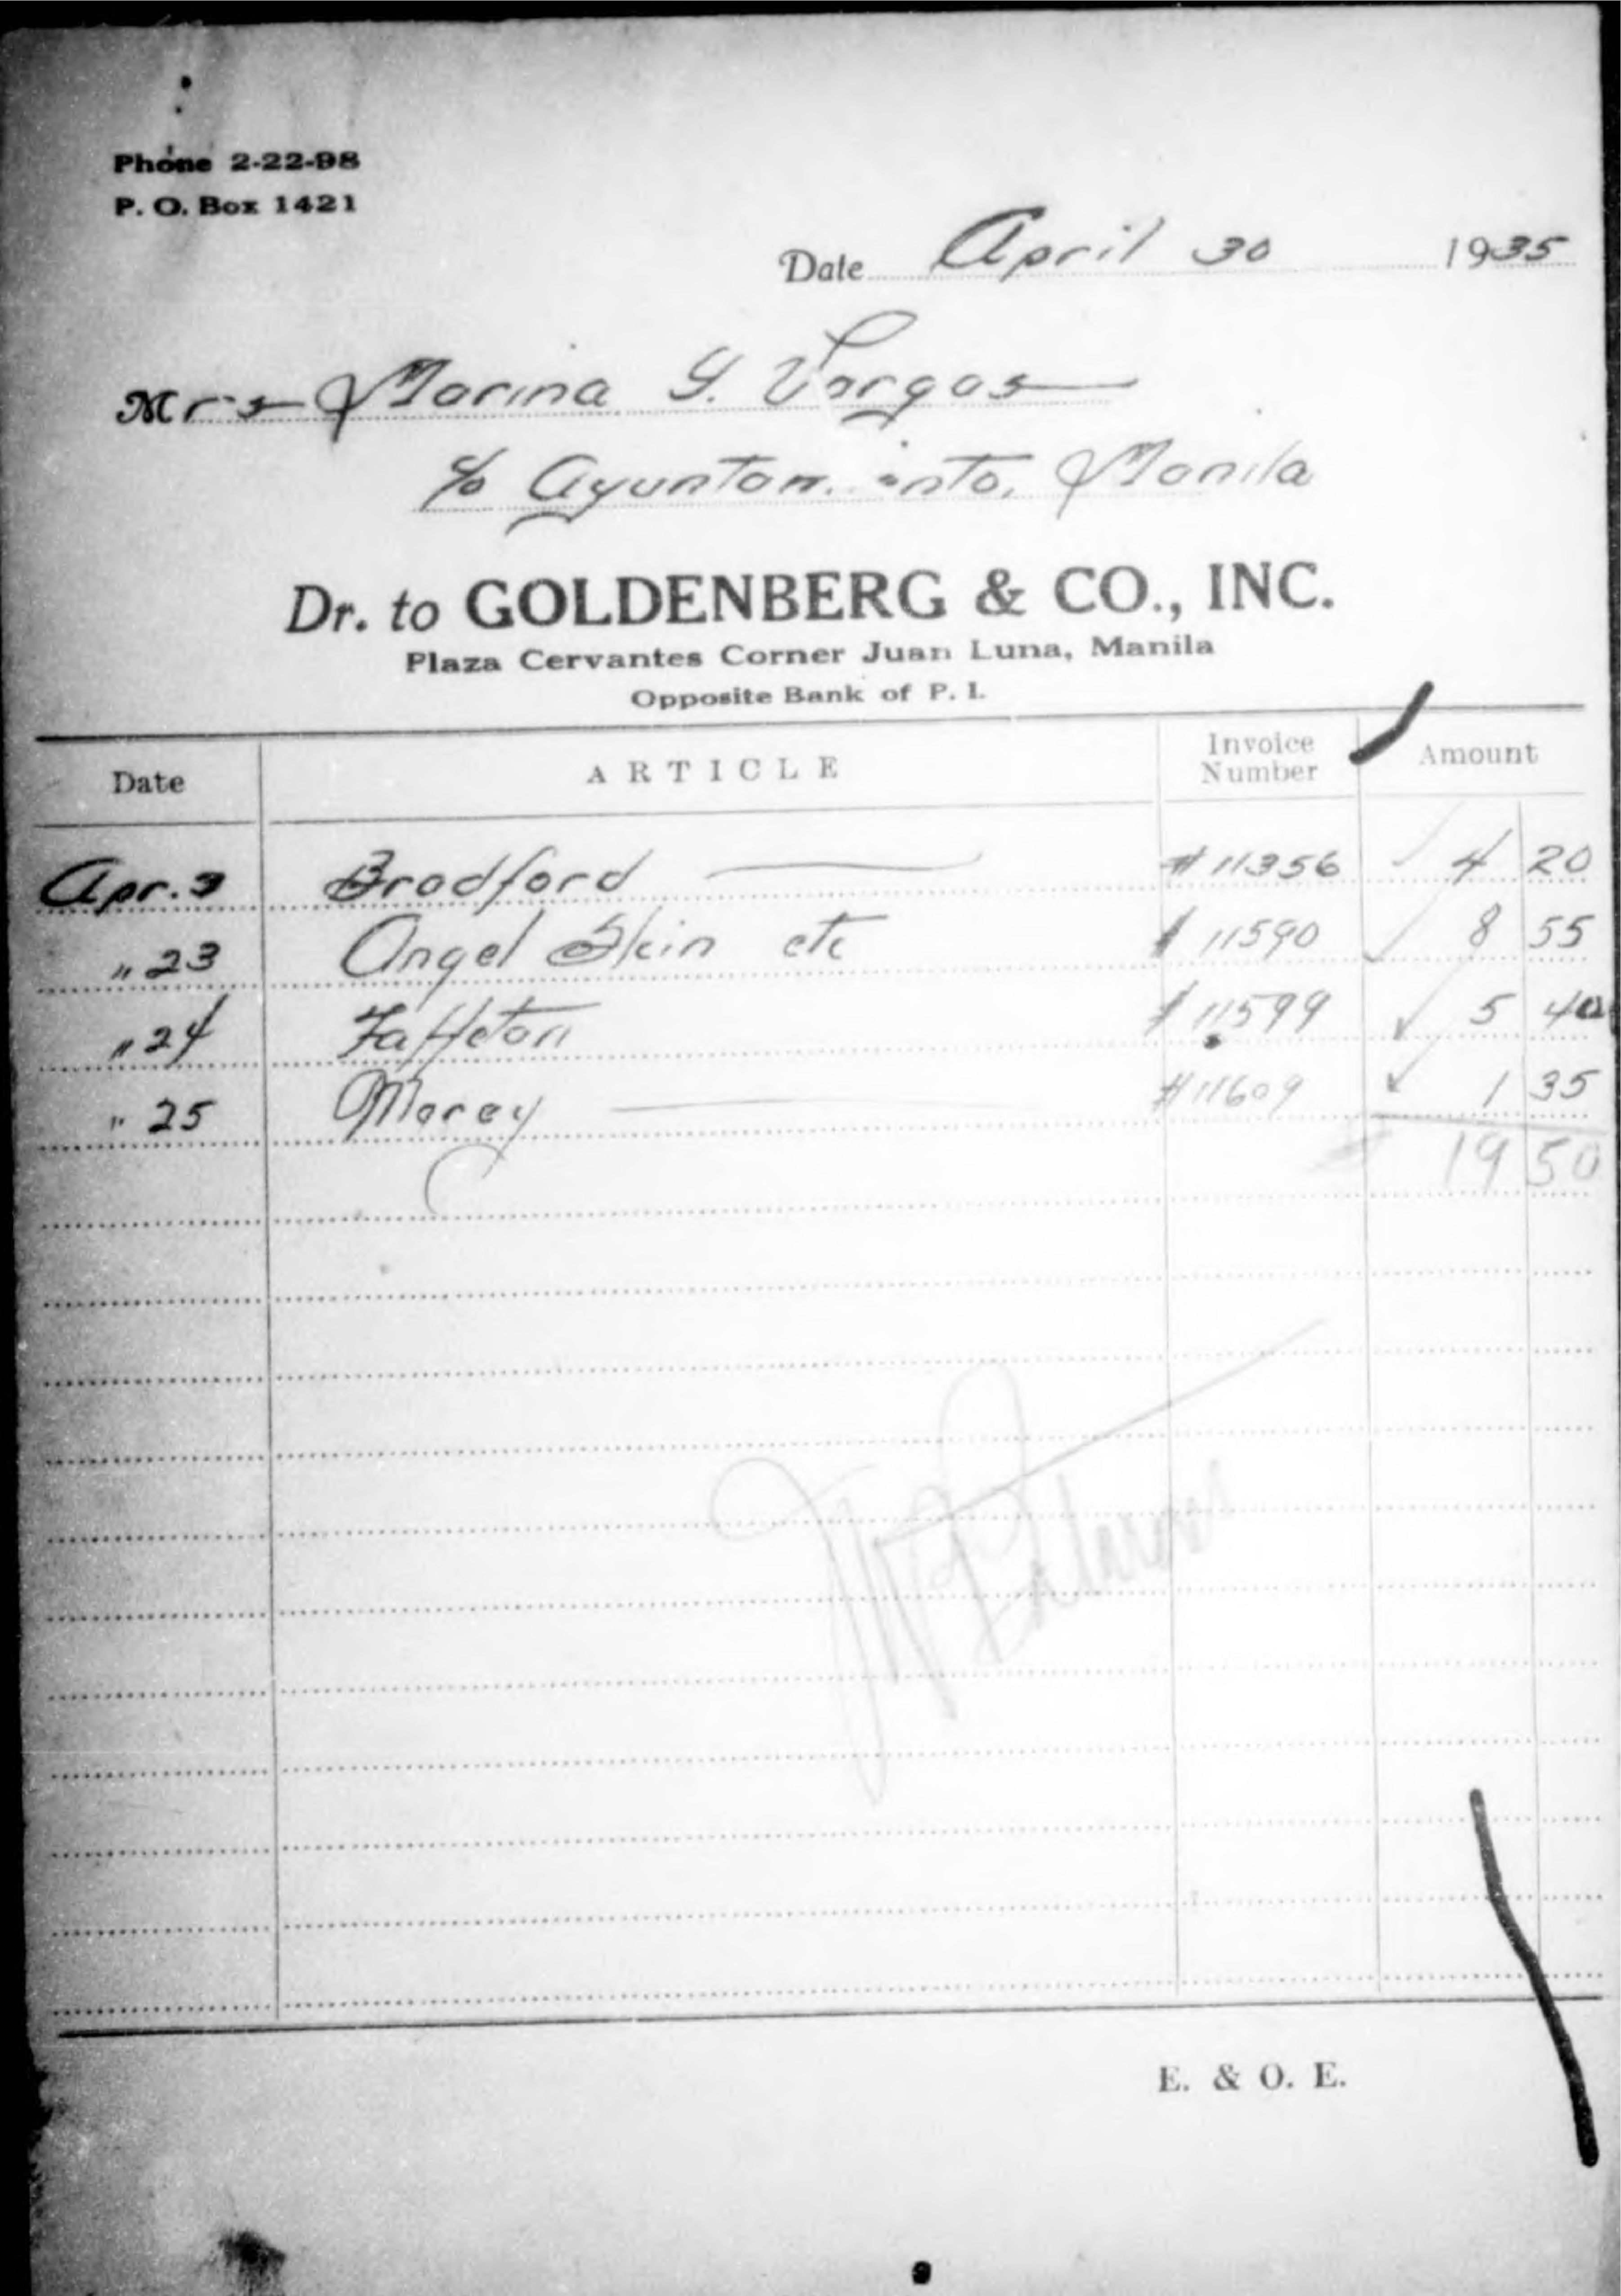 Phone 2-22-98
P. O. Box 1421
Date April 30 1935
Mrs Marina Y. Vargas
c/o Ayuntamiento, Manila
Dr. to GOLDENBERG & CO., INC.
Plaza Cervantes Corner Juan Luna, Manila
Opposite Bank of P. I.
Date ARTICLE Invoice Number Amount
Apr. 3 Bradford # 11356 4 20
" 23 Angel Skin etc # 11590 8 55
" 24 Taffeton # 11599 5 40
" 25 # 11609 1 35
19 50
E. & O. E.